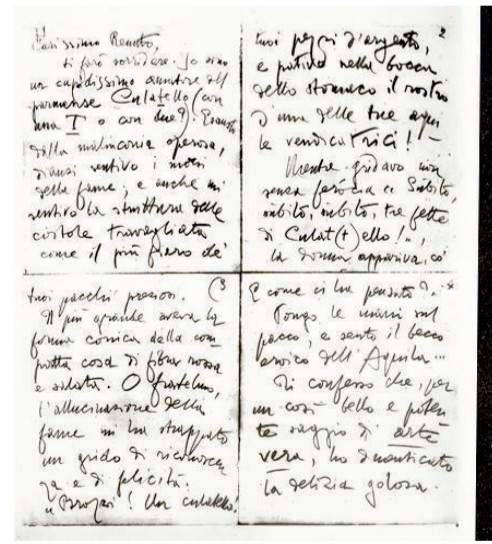 Carissimo Renato,
ti farò sorridere. Io sono
un cupidissimo amatore del
parmense Culatello (con
una T o con due?). Esausto
dalla malinconia operosa,
dianzi sentivo i morsi
della fame; e anche mi
sentivo la struttura delle
costole travagliata
come il più fiero de'
2
tuoi pezzi d'argento,
e pativo nella bocca
dello stomaco il rostro
d'una delle tue aqui
le vendicatrici! –
Mentre gridavo non
senza ferocia « Subito,
subito, subito, tre fette
di Culat(t)ello! »,
la donna appariva, co'
(3
tuoi pacchi preziosi.
Il più grande aveva la
forma conica della com
patta cosa di fibra rossa
e salata. O fratellino,
l'allucinazione della
fame mi ha strappato
un grido di riconoscen
za e di felicità.
« Brozzi! Un culatello!
E come ci ha pensato? »
Pongo le mani sul
pacco, e sento il becco
eroico dell'Aquila...
Ti confesso che, per
un così bello e poten
te saggio di arte
vera, ho dimenticato
la delizia golosa.